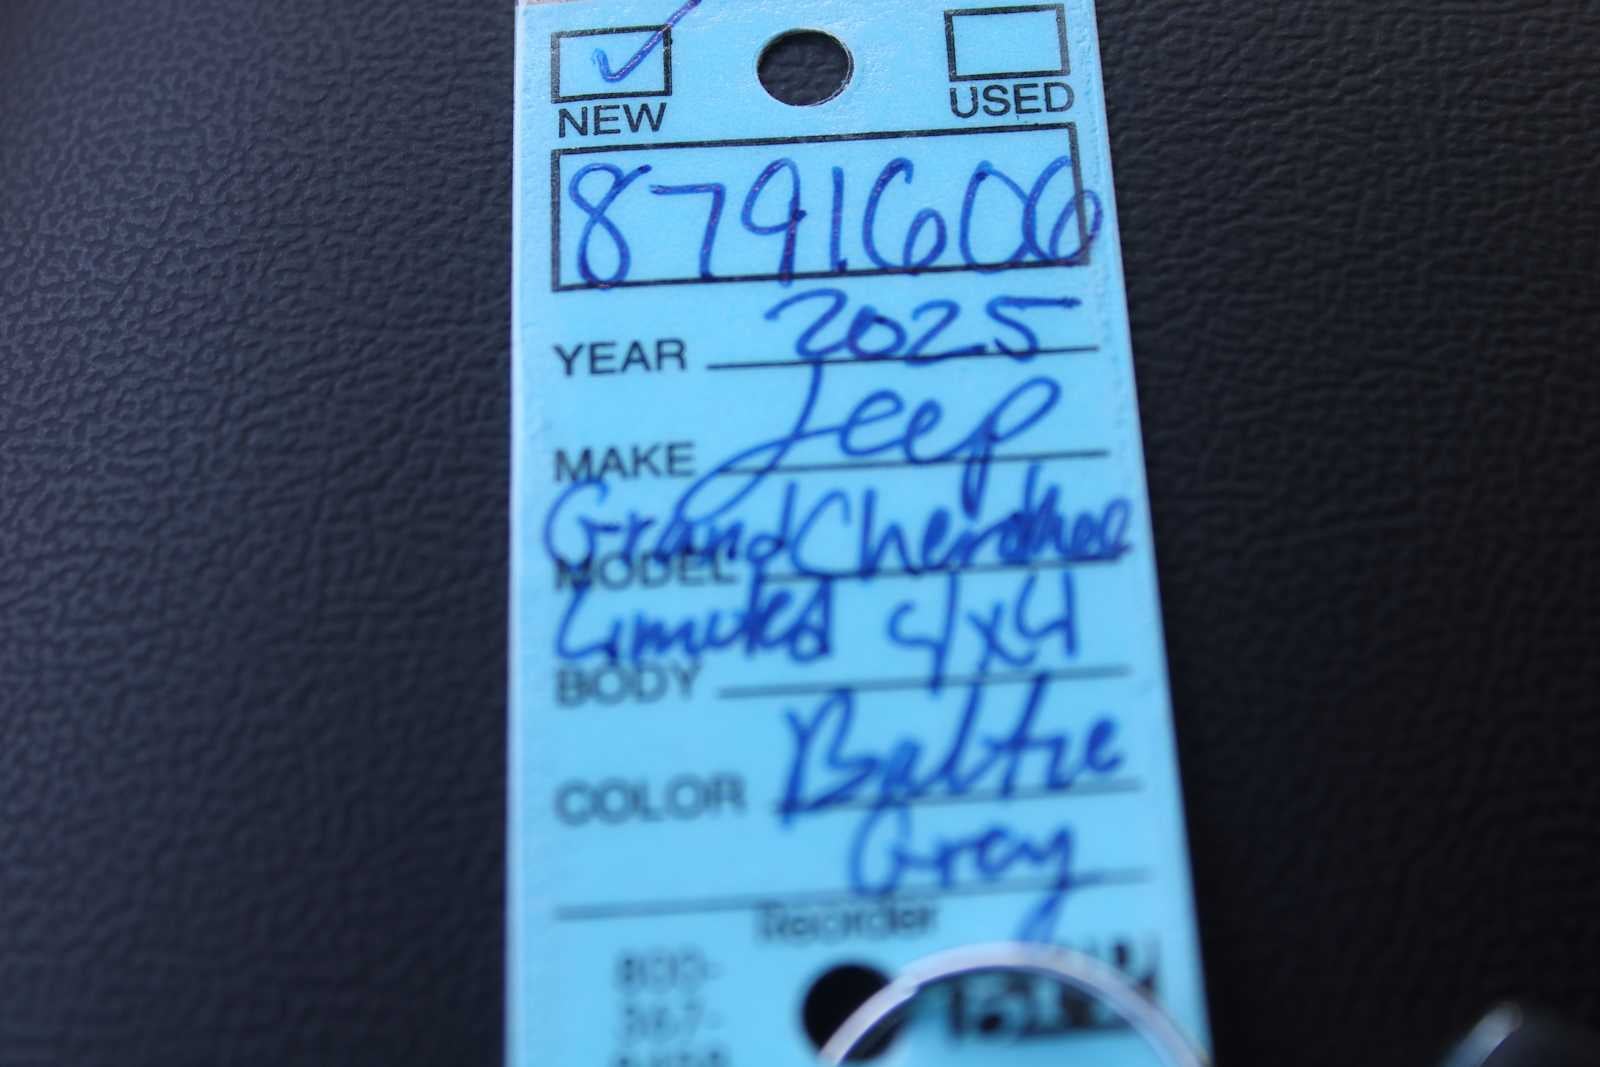 NEW USED
8791606
YEAR 2025
MAKE Jeep
Grand Cherokee
MODEL
Limited 4x4
BODY
COLOR Baltic
Gray
Reorder
800-
367-